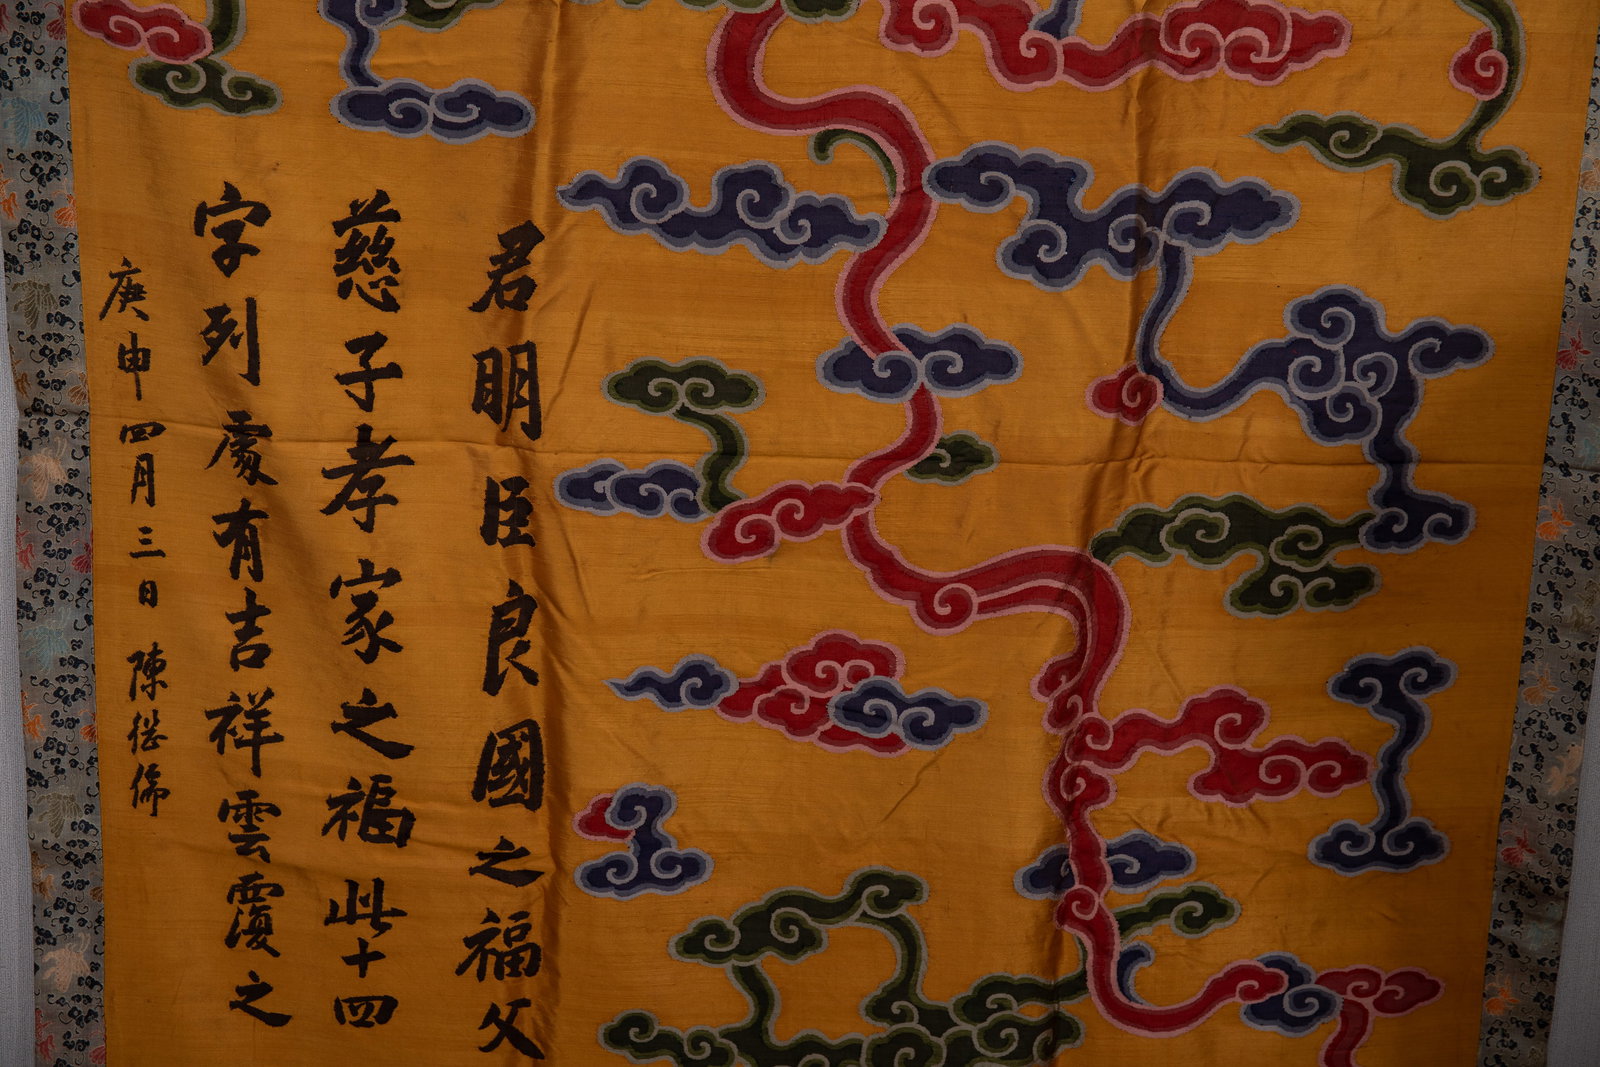 君明臣良國之福父
慈子孝家之福此十四
字列處有吉祥雲覆之
庚申四月三日 陳繼倫